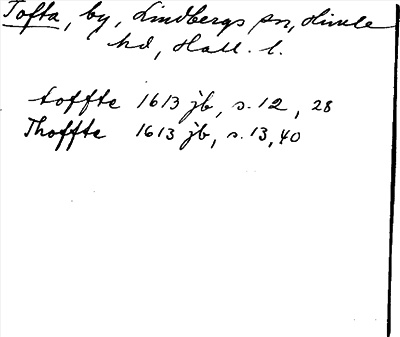 Tofta, by, Lindbergs sn, Himle
hd, Hall. l.
toffte 1613 jb, s. 12, 28
Thoffte 1613 jb, s. 13, 40